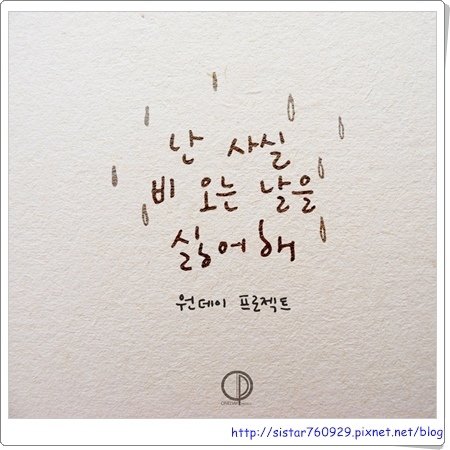 난 사실
비 오는 날을
싫어해
원데이 프로젝트
http://sistar760929.pixnet.net/blog